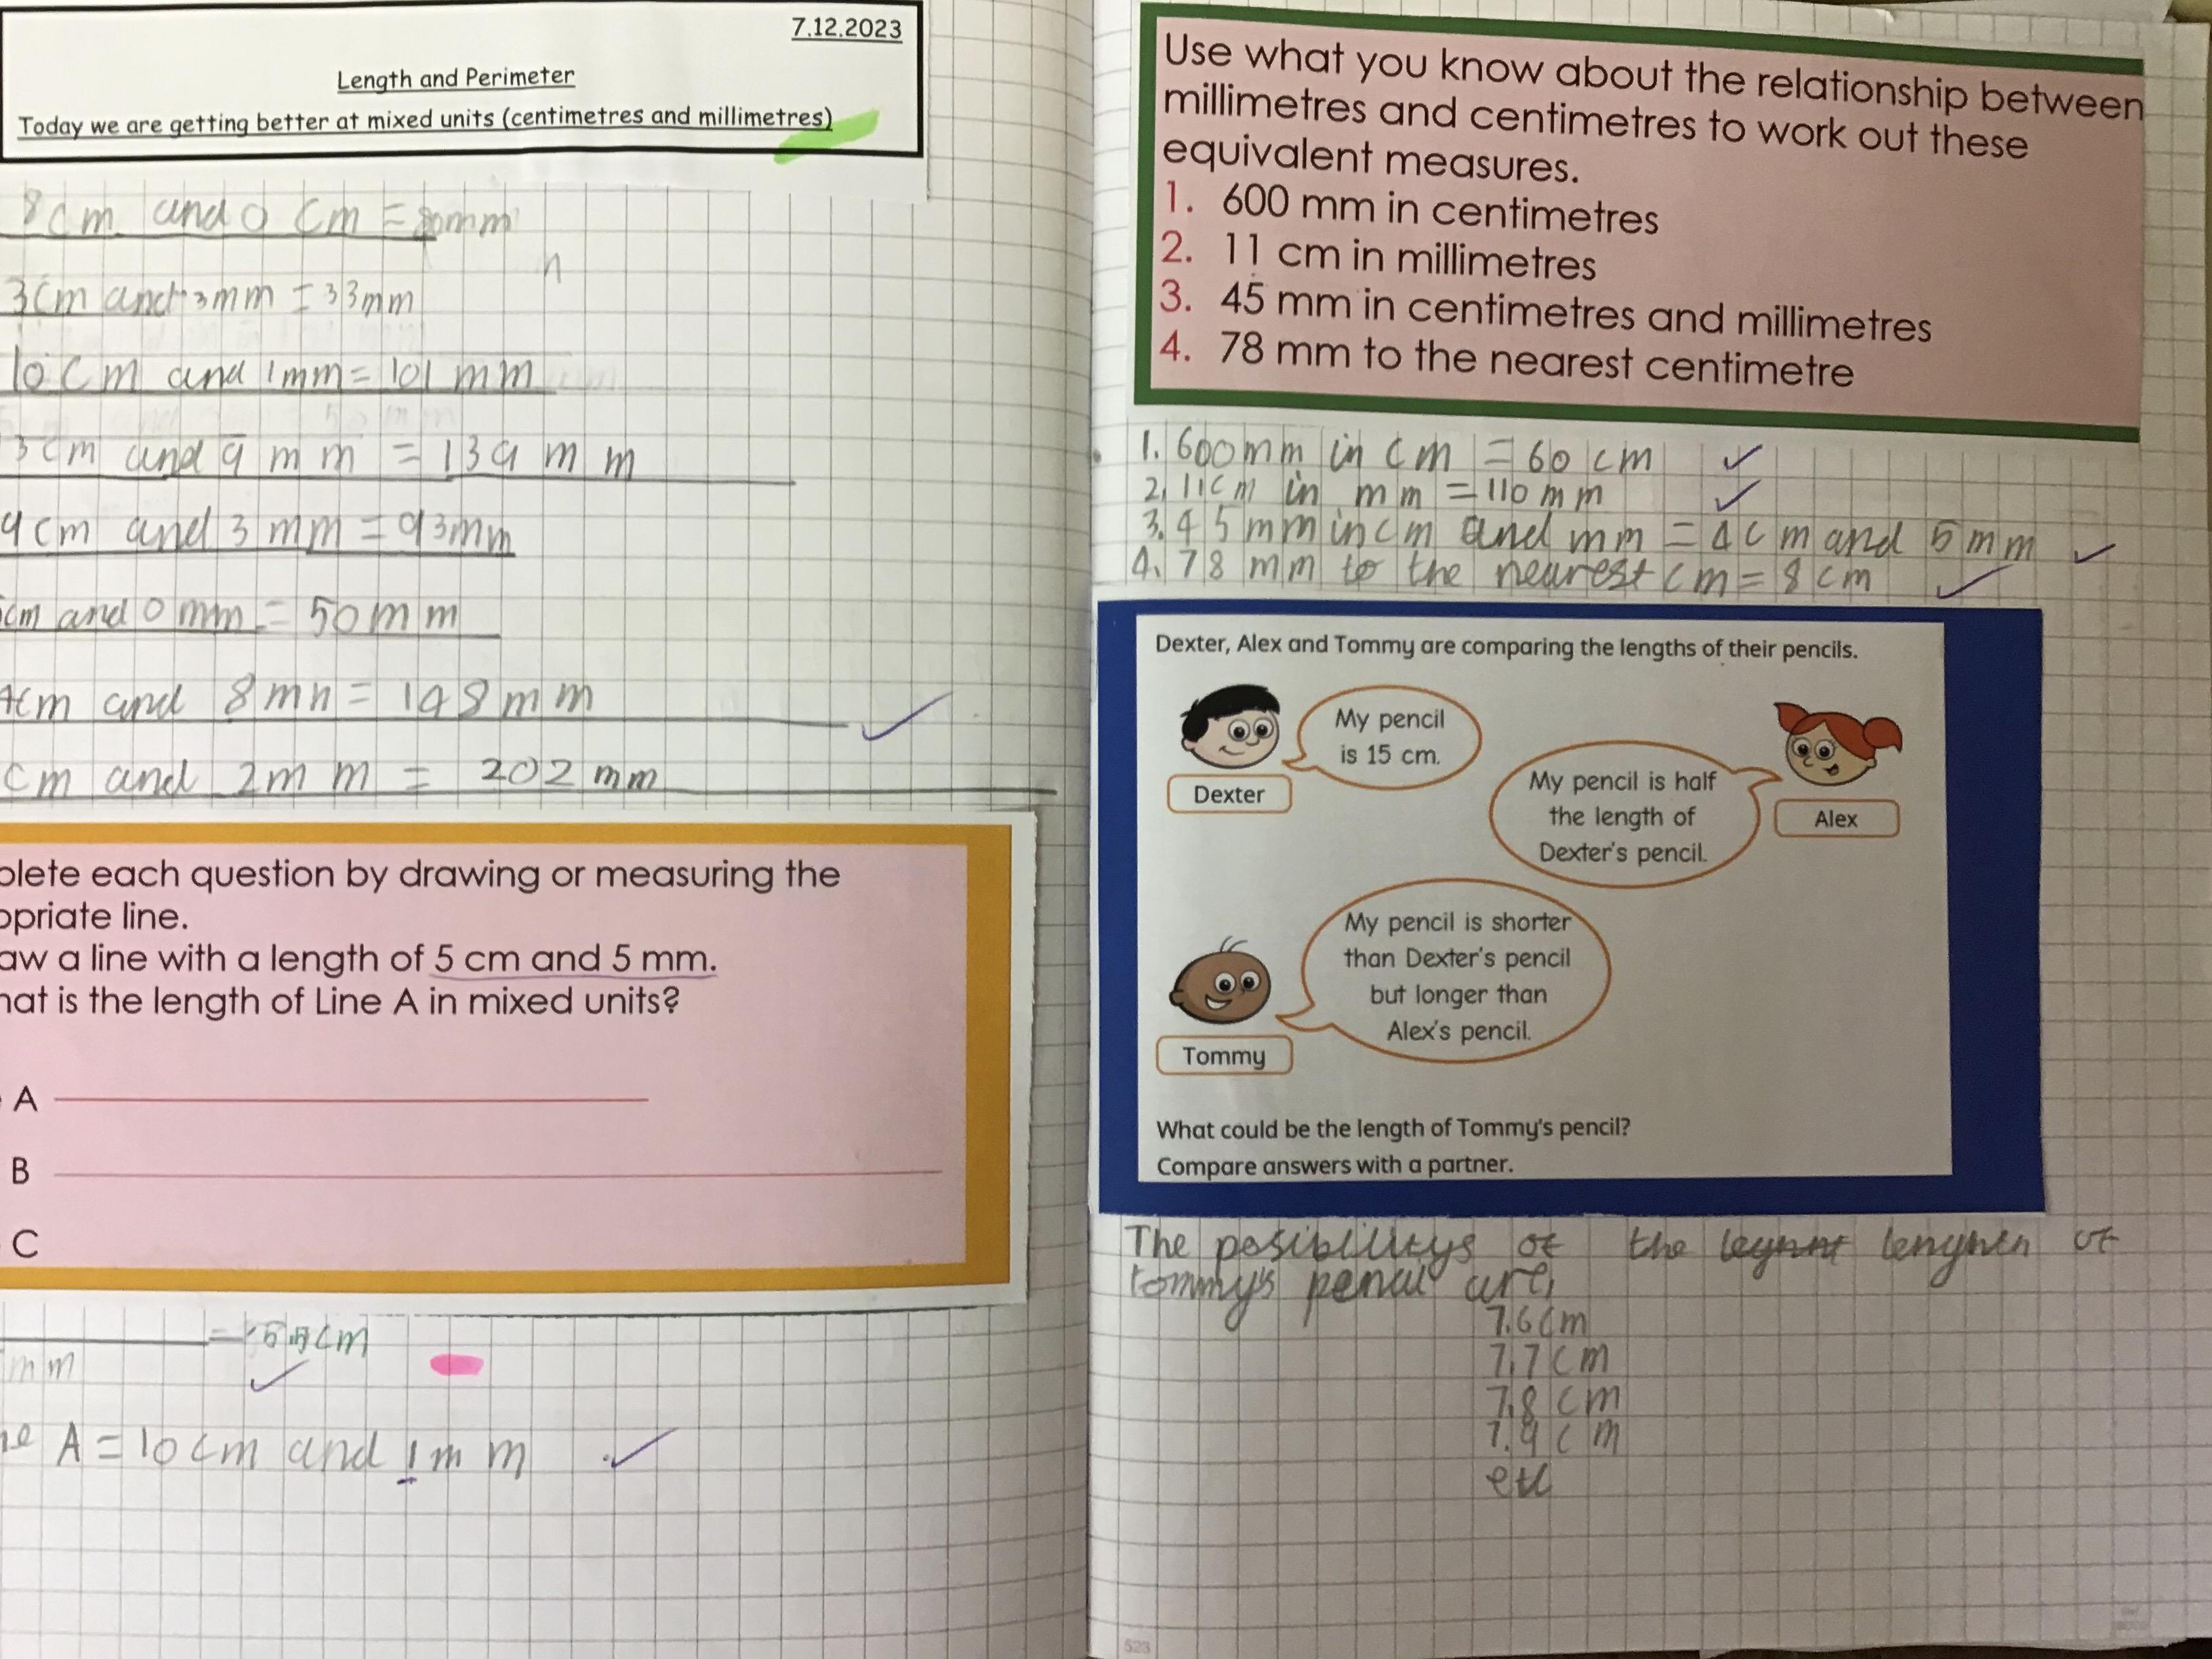 7.12.2023
Length and Perimeter
Today we are getting better at mixed units (centimetres and millimetres)
8cm and 0 cm = 80mm
3cm and 3mm = 33mm
10cm and 1mm = 101 mm
3cm and 9 mm = 139 mm
9cm and 3 mm = 93mm
cm and 0 mm = 50mm
4cm and 8mn = 148mm
cm and 2mm = 202 mm
plete each question by drawing or measuring the
opriate line.
aw a line with a length of 5 cm and 5 mm.
hat is the length of Line A in mixed units?
A
B
C
cm
mm
A = 10cm and 1mm
Use what you know about the relationship between
millimetres and centimetres to work out these
equivalent measures.
1. 600 mm in centimetres
2. 11 cm in millimetres
3. 45 mm in centimetres and millimetres
4. 78 mm to the nearest centimetre
1. 600mm in cm = 60 cm
2. 11cm in mm = 110mm
3. 45 mm in cm and mm = 4cm and 5mm
4. 78 mm to the nearest cm = 8cm
Dexter, Alex and Tommy are comparing the lengths of their pencils.
My pencil
is 15 cm.
Dexter
My pencil is half
the length of
Dexter's pencil.
Alex
My pencil is shorter
than Dexter's pencil
but longer than
Alex's pencil.
Tommy
What could be the length of Tommy's pencil?
Compare answers with a partner.
The posibilitys of the of
tommy's pencil are,
7.6cm
7.7cm
7.8cm
7.9cm
etc
523